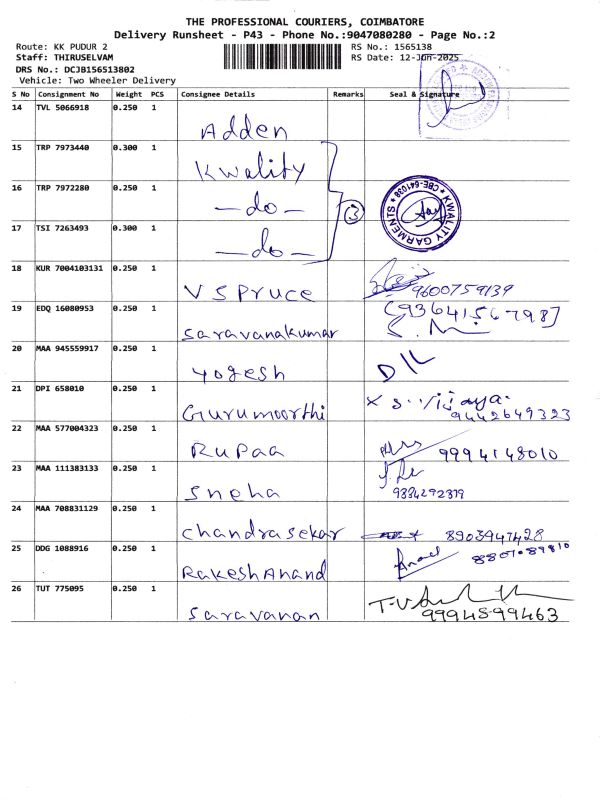 THE PROFESSIONAL COURIERS, COIMBATORE
Delivery Runsheet - P43 - Phone No.:9047080280 - Page No.:2
Route: KK PUDUR 2 RS No.: 1565138
Staff: THIRUSELVAM RS Date: 12-Jun-2025
DRS No.: DCJB156513802
Vehicle: Two Wheeler Delivery
S No Consignment No Weight PCS Consignee Details Remarks Seal & Signature
14 TVL 5066918 0.250 1
Adden
15 TRP 7973440 0.300 1
Kwality
16 TRP 7972280 0.250 1
—do— 3
KWALITY GARMENTS * CBE-641038 *
17 TSI 7263493 0.300 1
—do—
18 KUR 7004103131 0.250 1
V Spruce 9600759139
19 EDQ 16080953 0.250 1
[9364156798]
Saravanakumar
20 MAA 945559917 0.250 1
Yogesh
21 DPI 658010 0.250 1
Gurumoorthi 9442649323
22 MAA 577004323 0.250 1
Rupaa 9994148010
23 MAA 111383133 0.250 1
Sneha 9384292379
24 MAA 708831129 0.250 1
Chandrasekar 8903947428
25 DDG 1088916 0.250 1
Rakesh Anand
26 TUT 775095 0.250 1
Saravanan 9994599463